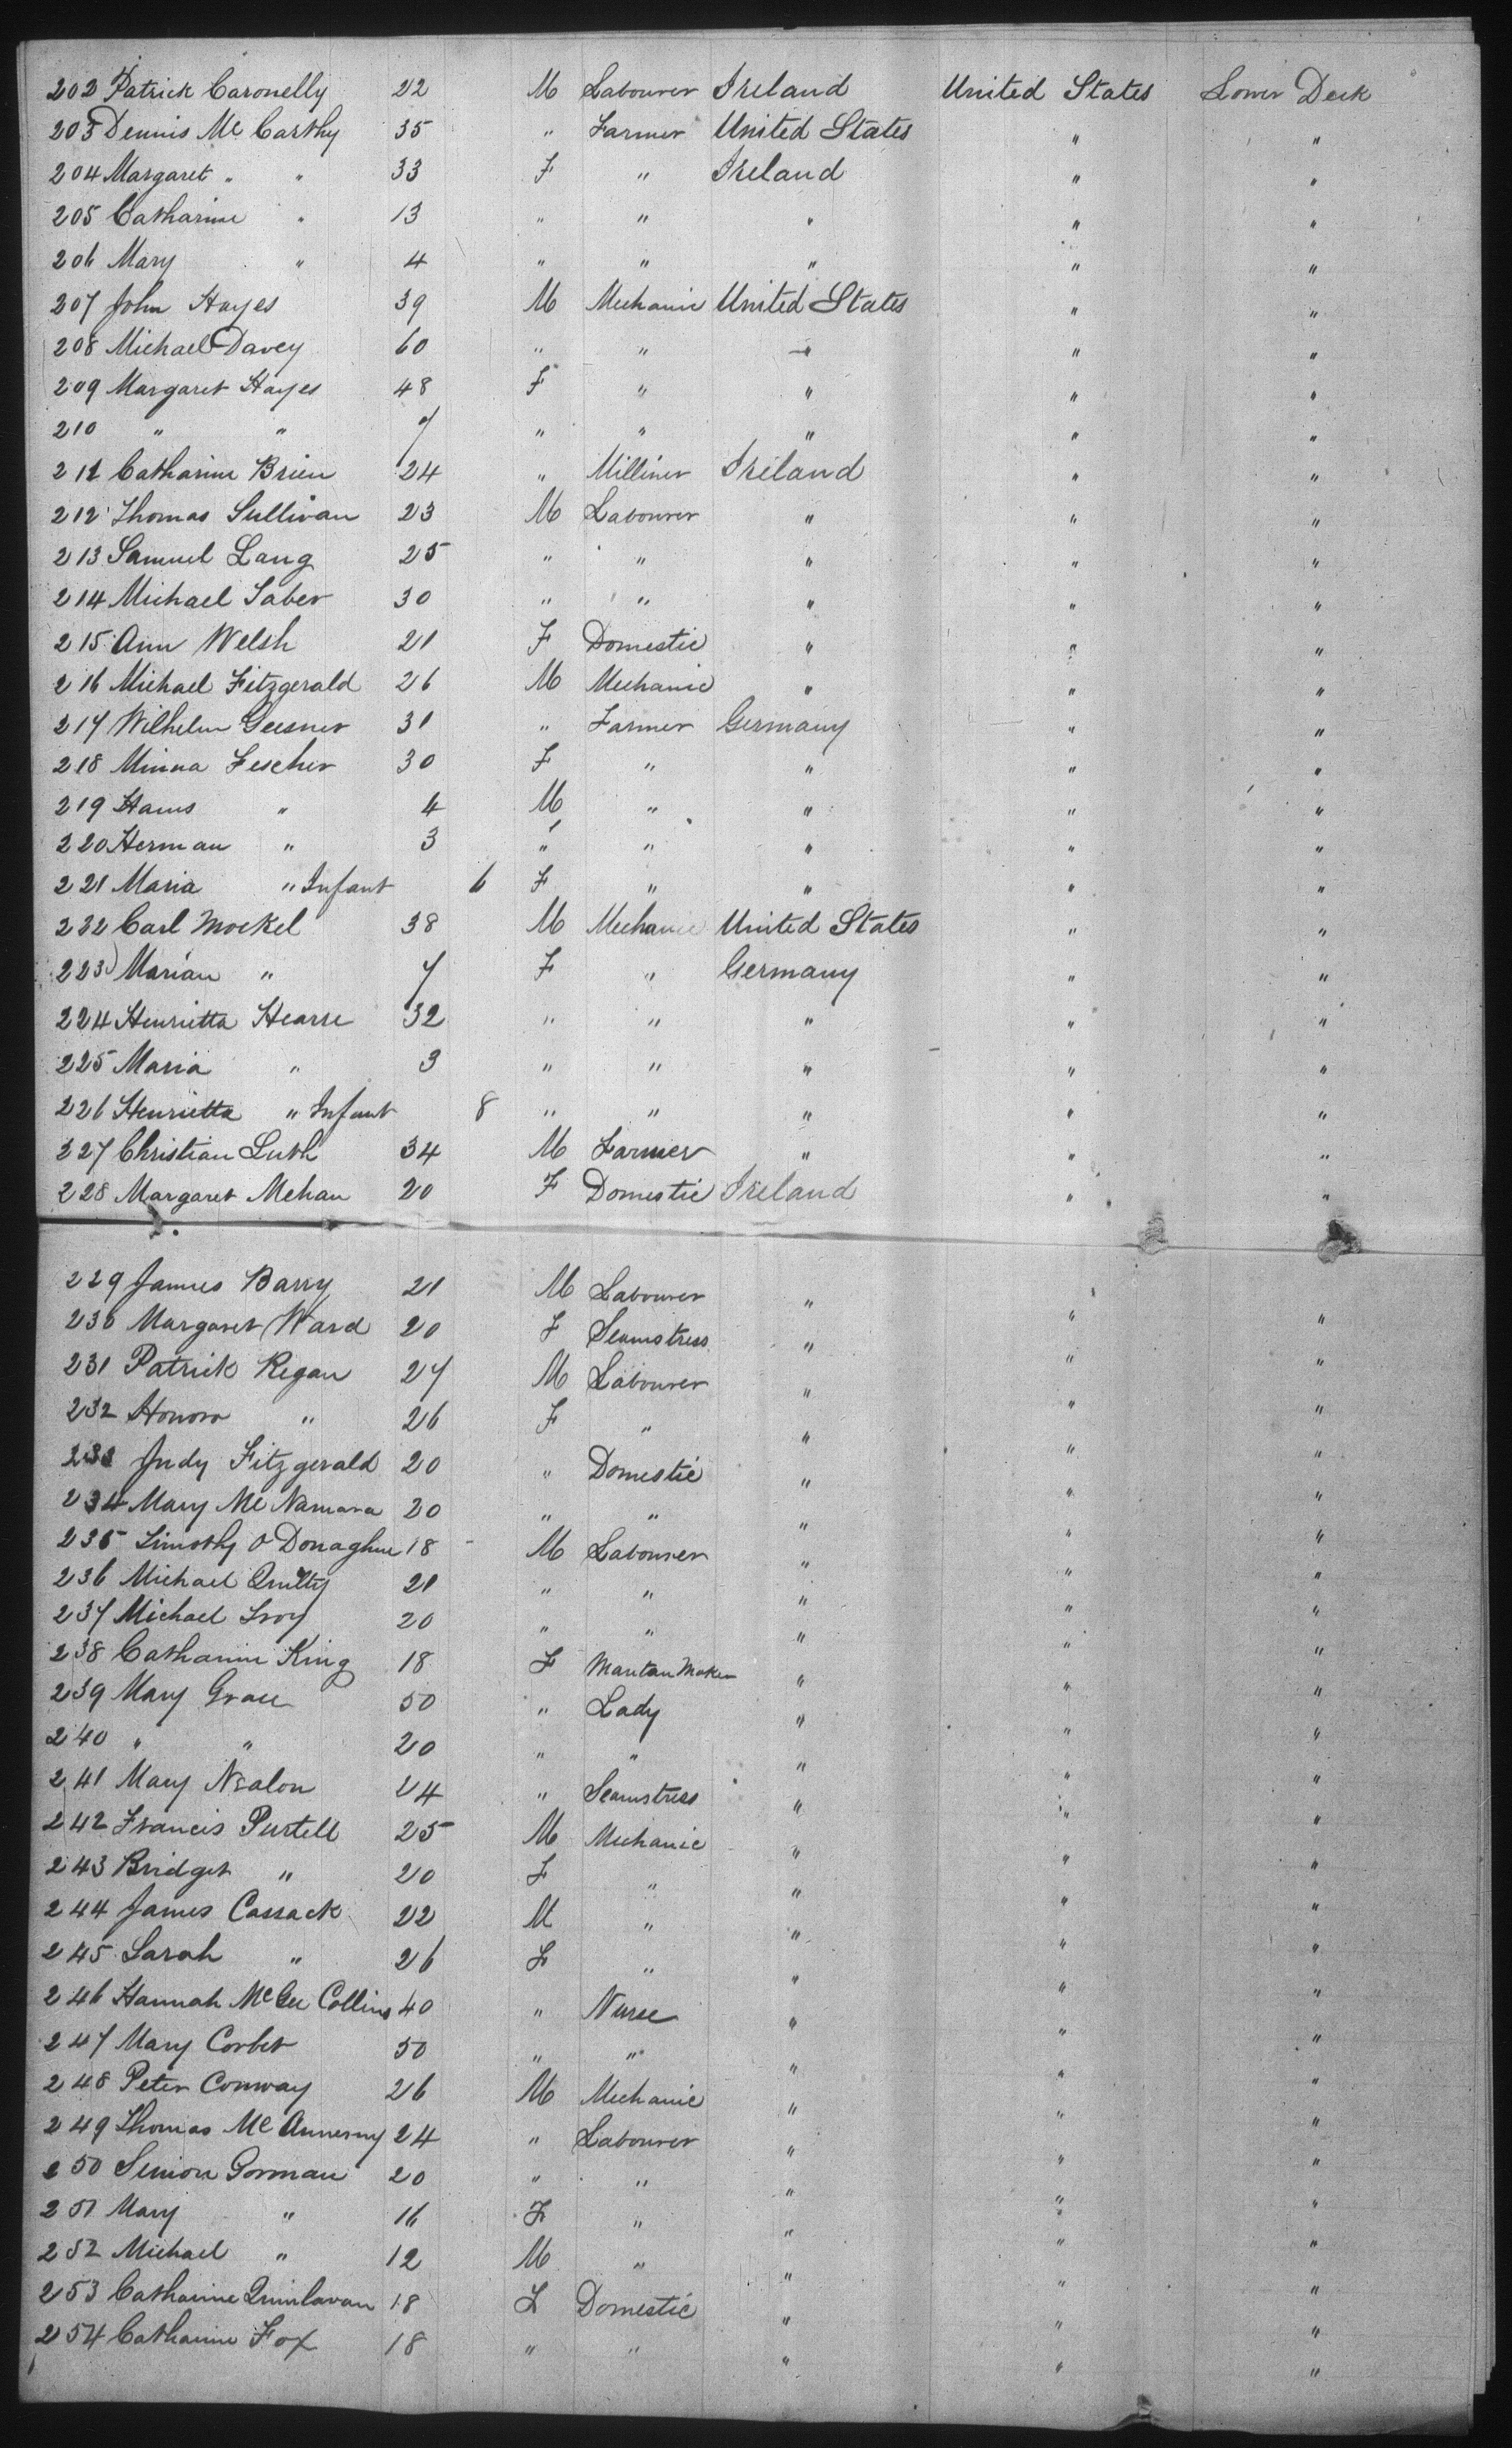 202 Patrick Caronelly 22 M Labourer Ireland United States Lower Deck
203 Dennis Mc Carthy 35 " Farmer United States " "
204 Margaret " " 33 F " Ireland " "
205 Catharine " 13 " " " " "
206 Mary " 4 " " " " "
207 John Hayes 39 M Mechanic United States " "
208 Michael Davey 60 " " " " "
209 Margaret Hayes 48 F " " " "
210 " " 7 " " " " "
211 Catharine Brien 24 " Milliner Ireland " "
212 Thomas Sullivan 23 M Labourer " " "
213 Samuel Lang 25 " " " " "
214 Michael Taber 30 " " " " "
215 Ann Welsh 21 F Domestic " " "
216 Michael Fitzgerald 26 M Mechanic " " "
217 Wilhelm Geesner 31 " Farmer Germany " "
218 Minna Fescher 30 F " " " "
219 Hams " 4 M " " " "
220 Herman " 3 " " " " "
221 Maria " Infant 6 F " " " "
222 Carl Mockel 38 M Mechanic United States " "
223 Marian " 7 F " Germany " "
224 Henrietta Hearse 32 " " " " "
225 Maria " 3 " " " " "
226 Henrietta " Infant 8 " " " " "
227 Christian Luth 34 M Farmer " " "
228 Margaret Mehan 20 F Domestic Ireland " "
229 James Barry 21 M Labourer " " "
230 Margaret Ward 20 F Seamstress " " "
231 Patrick Regan 27 M Labourer " " "
232 Honora " 26 F " " " "
233 Judy Fitzgerald 20 " Domestic " " "
234 Mary Mc Namara 20 " " " " "
235 Timothy O Donaghue 18 M Labourer " " "
236 Michael Quilty 21 " " " " "
237 Michael Troy 20 " " " " "
238 Catharine King 18 F Mantau Maker " " "
239 Mary Grace 50 " Lady " " "
240 " " 20 " " " " "
241 Mary Nealon 24 " Seamstress " " "
242 Francis Purtell 25 M Mechanic " " "
243 Bridget " 20 F " " " "
244 James Cassack 22 M " " " "
245 Sarah " 26 F " " " "
246 Hannah McGee Collins 40 " Nurse " " "
247 Mary Corbet 50 " " " " "
248 Peter Conway 26 M Mechanic " " "
249 Thomas Mc Annerny 24 " Labourer " " "
250 Simon Gorman 20 " " " " "
251 Mary " 16 F " " " "
252 Michael " 12 M " " " "
253 Catharine Quinlavan 18 F Domestic " " "
254 Catharine Fox 18 " " " " "